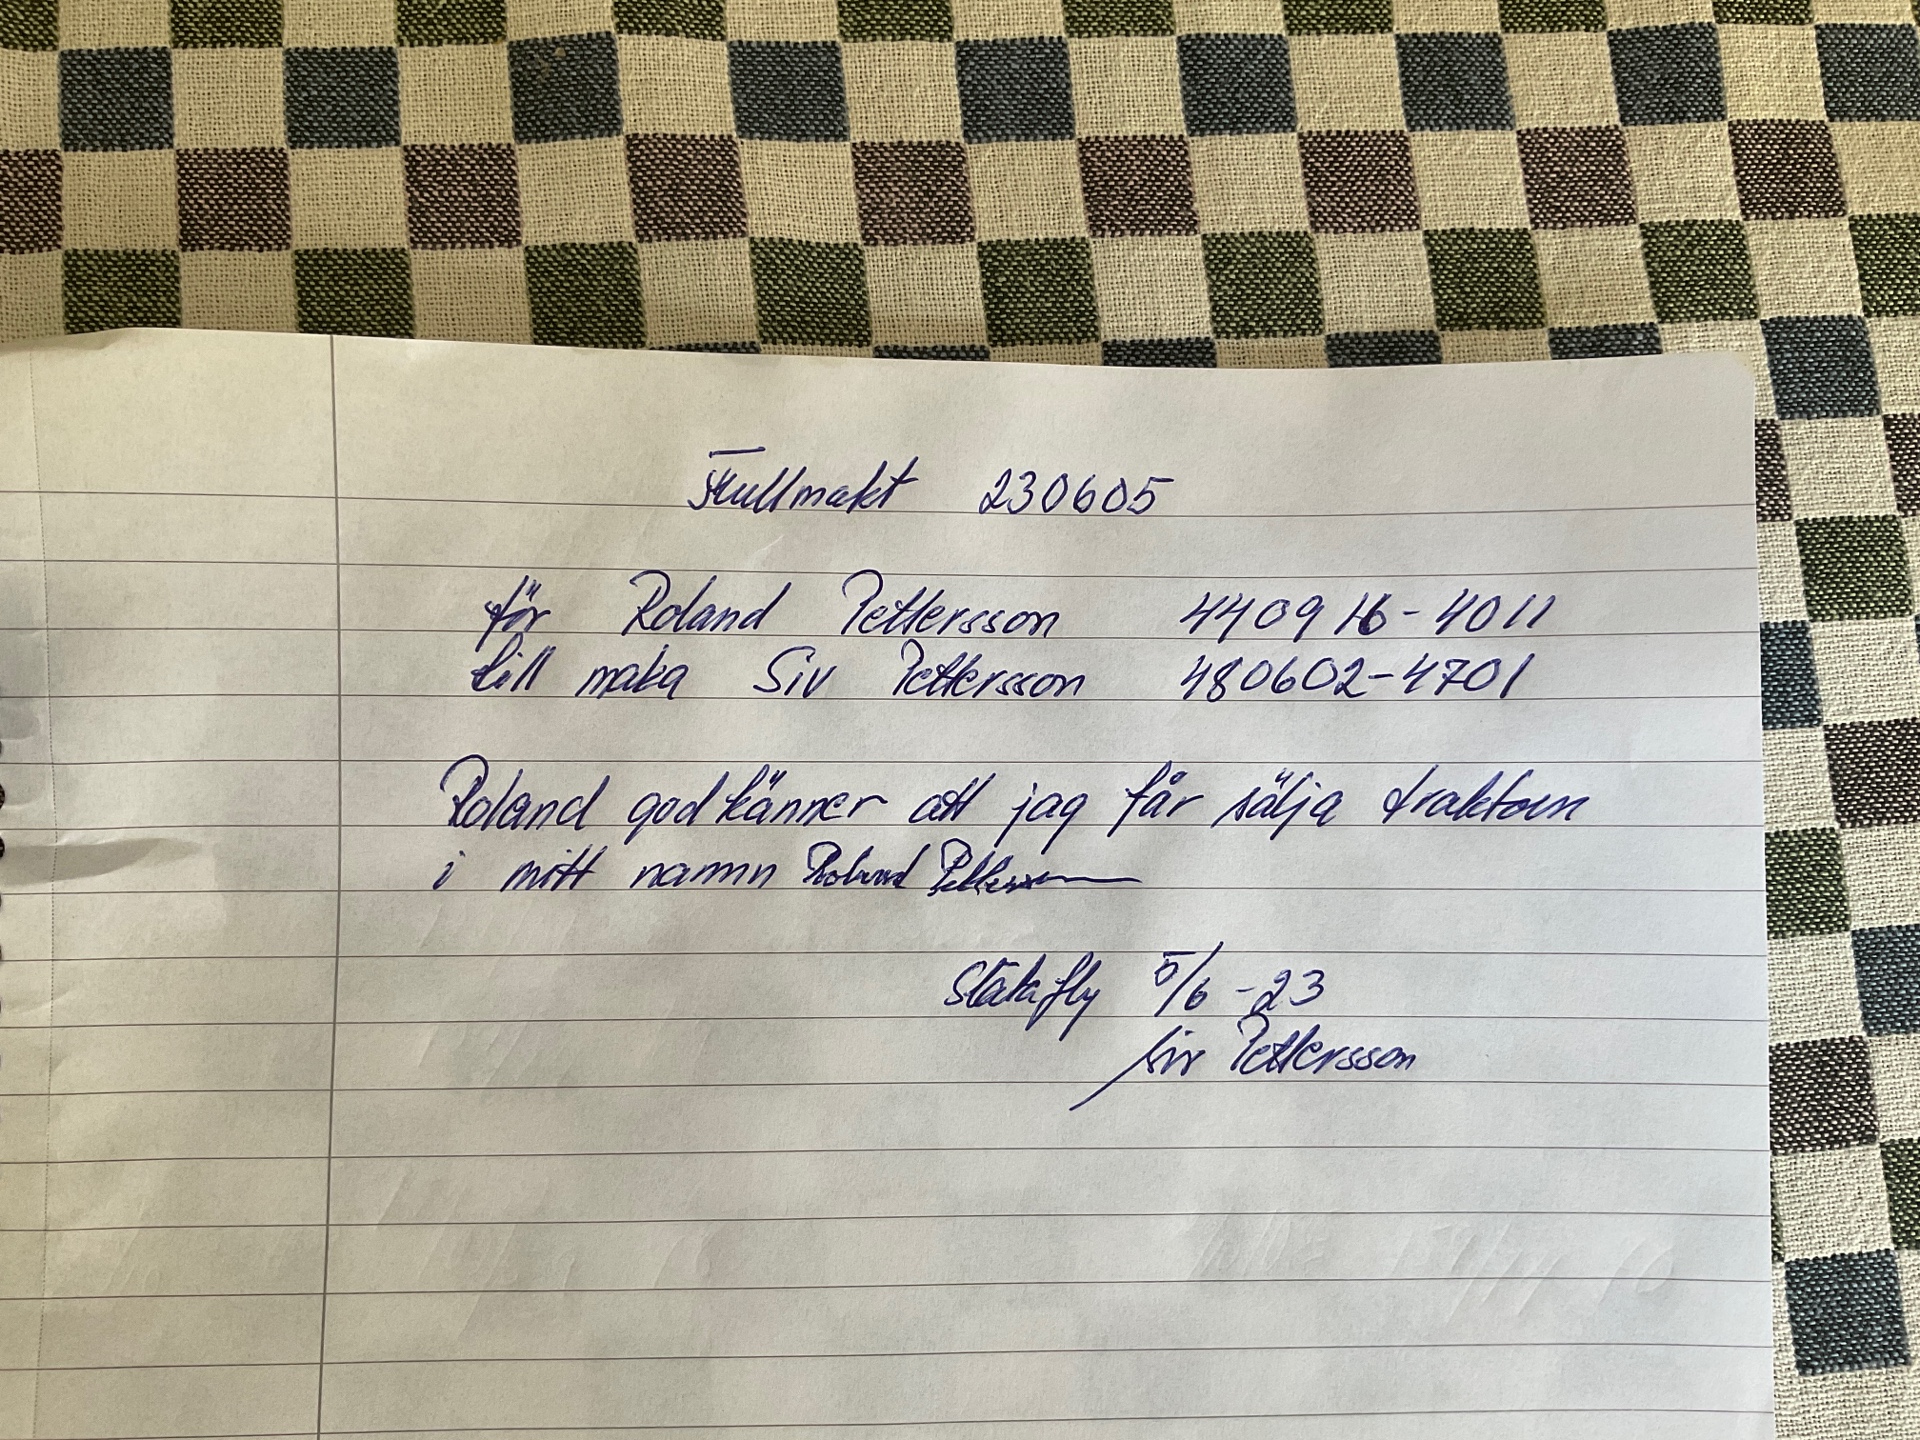 Fullmakt 230605
för Roland Pettersson 440916-4011
till maka Siv Pettersson 480602-4701
Roland godkänner att jag får sälja traktorn
i mitt namn Roland Pettersson
5/6 -23
Siv Pettersson